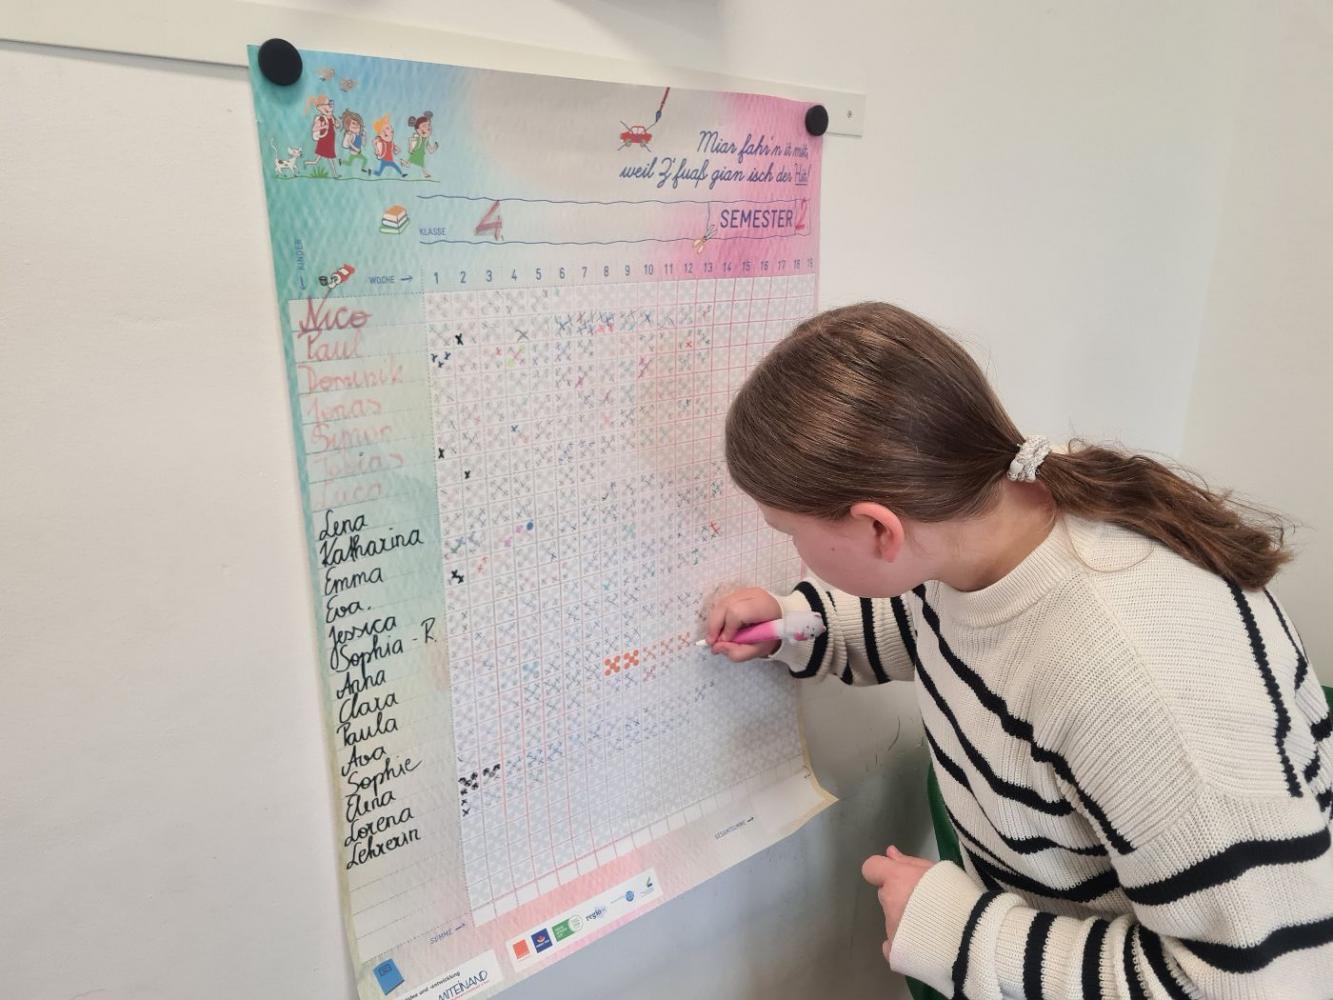 Miar fahr'n it mit,
weil z'fuaß gian isch der Hit!
KLASSE 4 SEMESTER 2
KINDER
WOCHE → 1 2 3 4 5 6 7 8 9 10 11 12 13 14 15 16 17 18 19
Nico
Paul
Dominik
Jonas
Simon
Tobias
Luca
Lena
Katharina
Emma
Eva.
Jessica
Sophia-R.
Anna
Clara
Paula
Ava
Sophie
Elena
Lorena
Lehrerin
GESAMTSUMME →
SUMME →
regio
MITEINAND